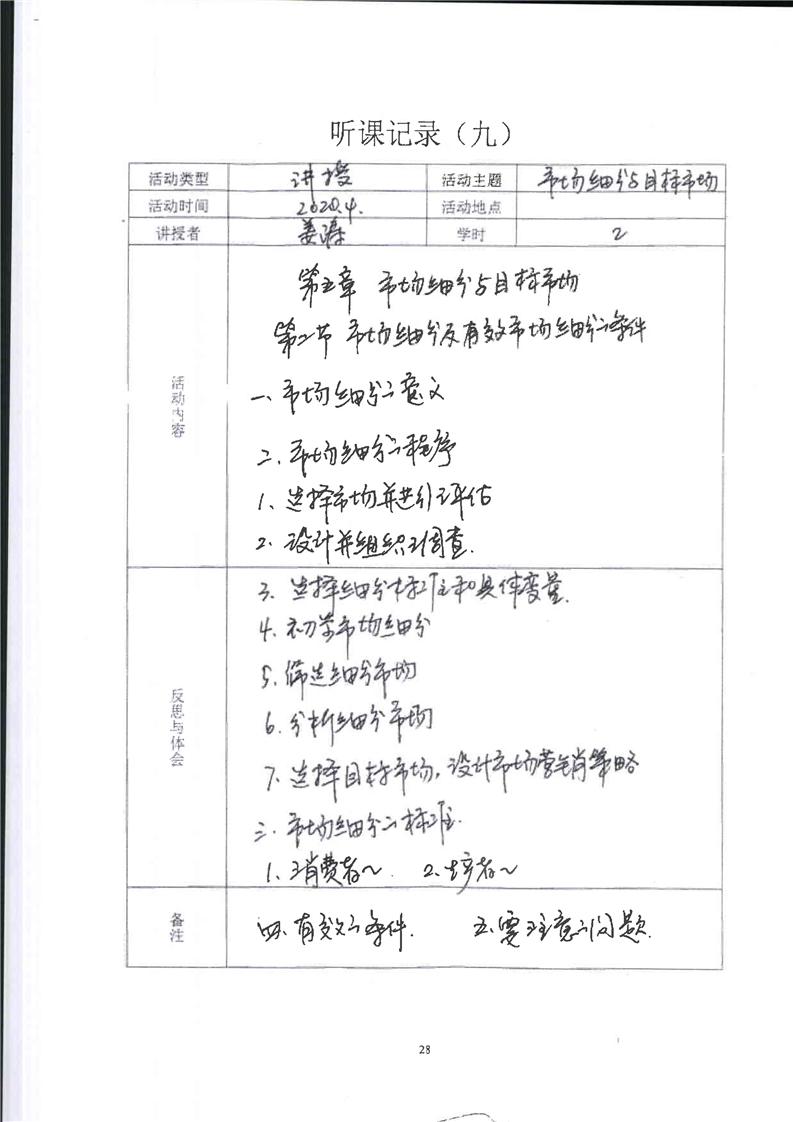 听课记录（九）
活动类型 讲授 活动主题 市场细分与目标市场
活动时间 2020.4. 活动地点
讲授者 姜涛 学时 2
活动内容
第五章 市场细分与目标市场
第二节 市场细分及有效市场细分的条件
一、市场细分的意义
二、市场细分的程序
1、选择市场并进行评估
2、设计并组织调查.
反思与体会
3. 选择细分标准和具体变量.
4. 初步市场细分
5. 筛选细分市场
6. 分析细分市场
7. 选择目标市场，设计市场营销策略
三、市场细分的标准.
1、消费者~. 2、生产者~
备注
四、有效的条件. 五、要注意的问题.
28